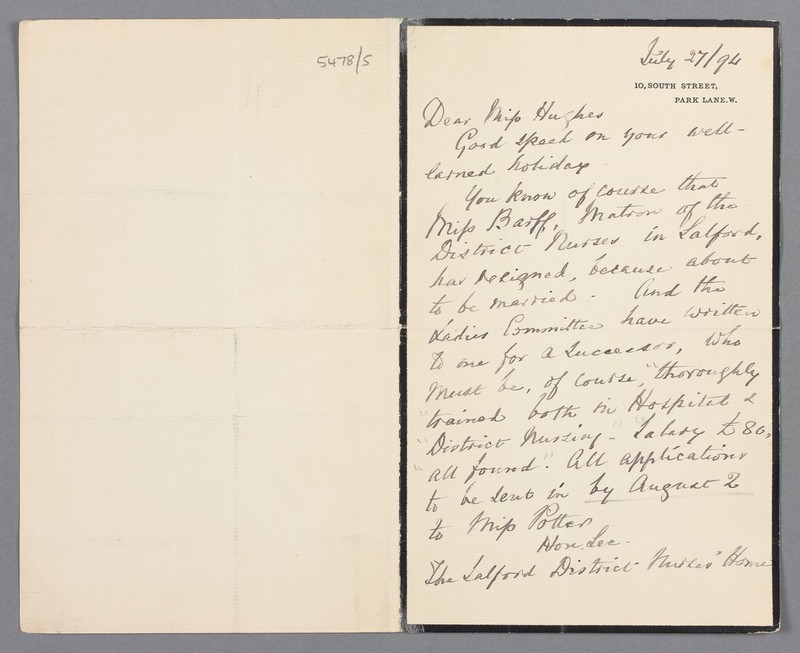 5478/5
July 27/94
10, SOUTH STREET,
PARK LANE. W.
Dear Miss Hughes
Good speed on your well-
earned holiday
You know of course that
Miss Barff, Matron of the
District Nurses in Salford,
has resigned, because about
to be married. And the
Ladies Committee have written
to me for a successor, who
must be, of course, "thoroughly
"trained both in Hospital &
"District Nursing" - "Salary £80,
"all found". All applications
to be sent in by August 2
to Miss Potter
Hon. Sec.
The Salford District Nurses' Home